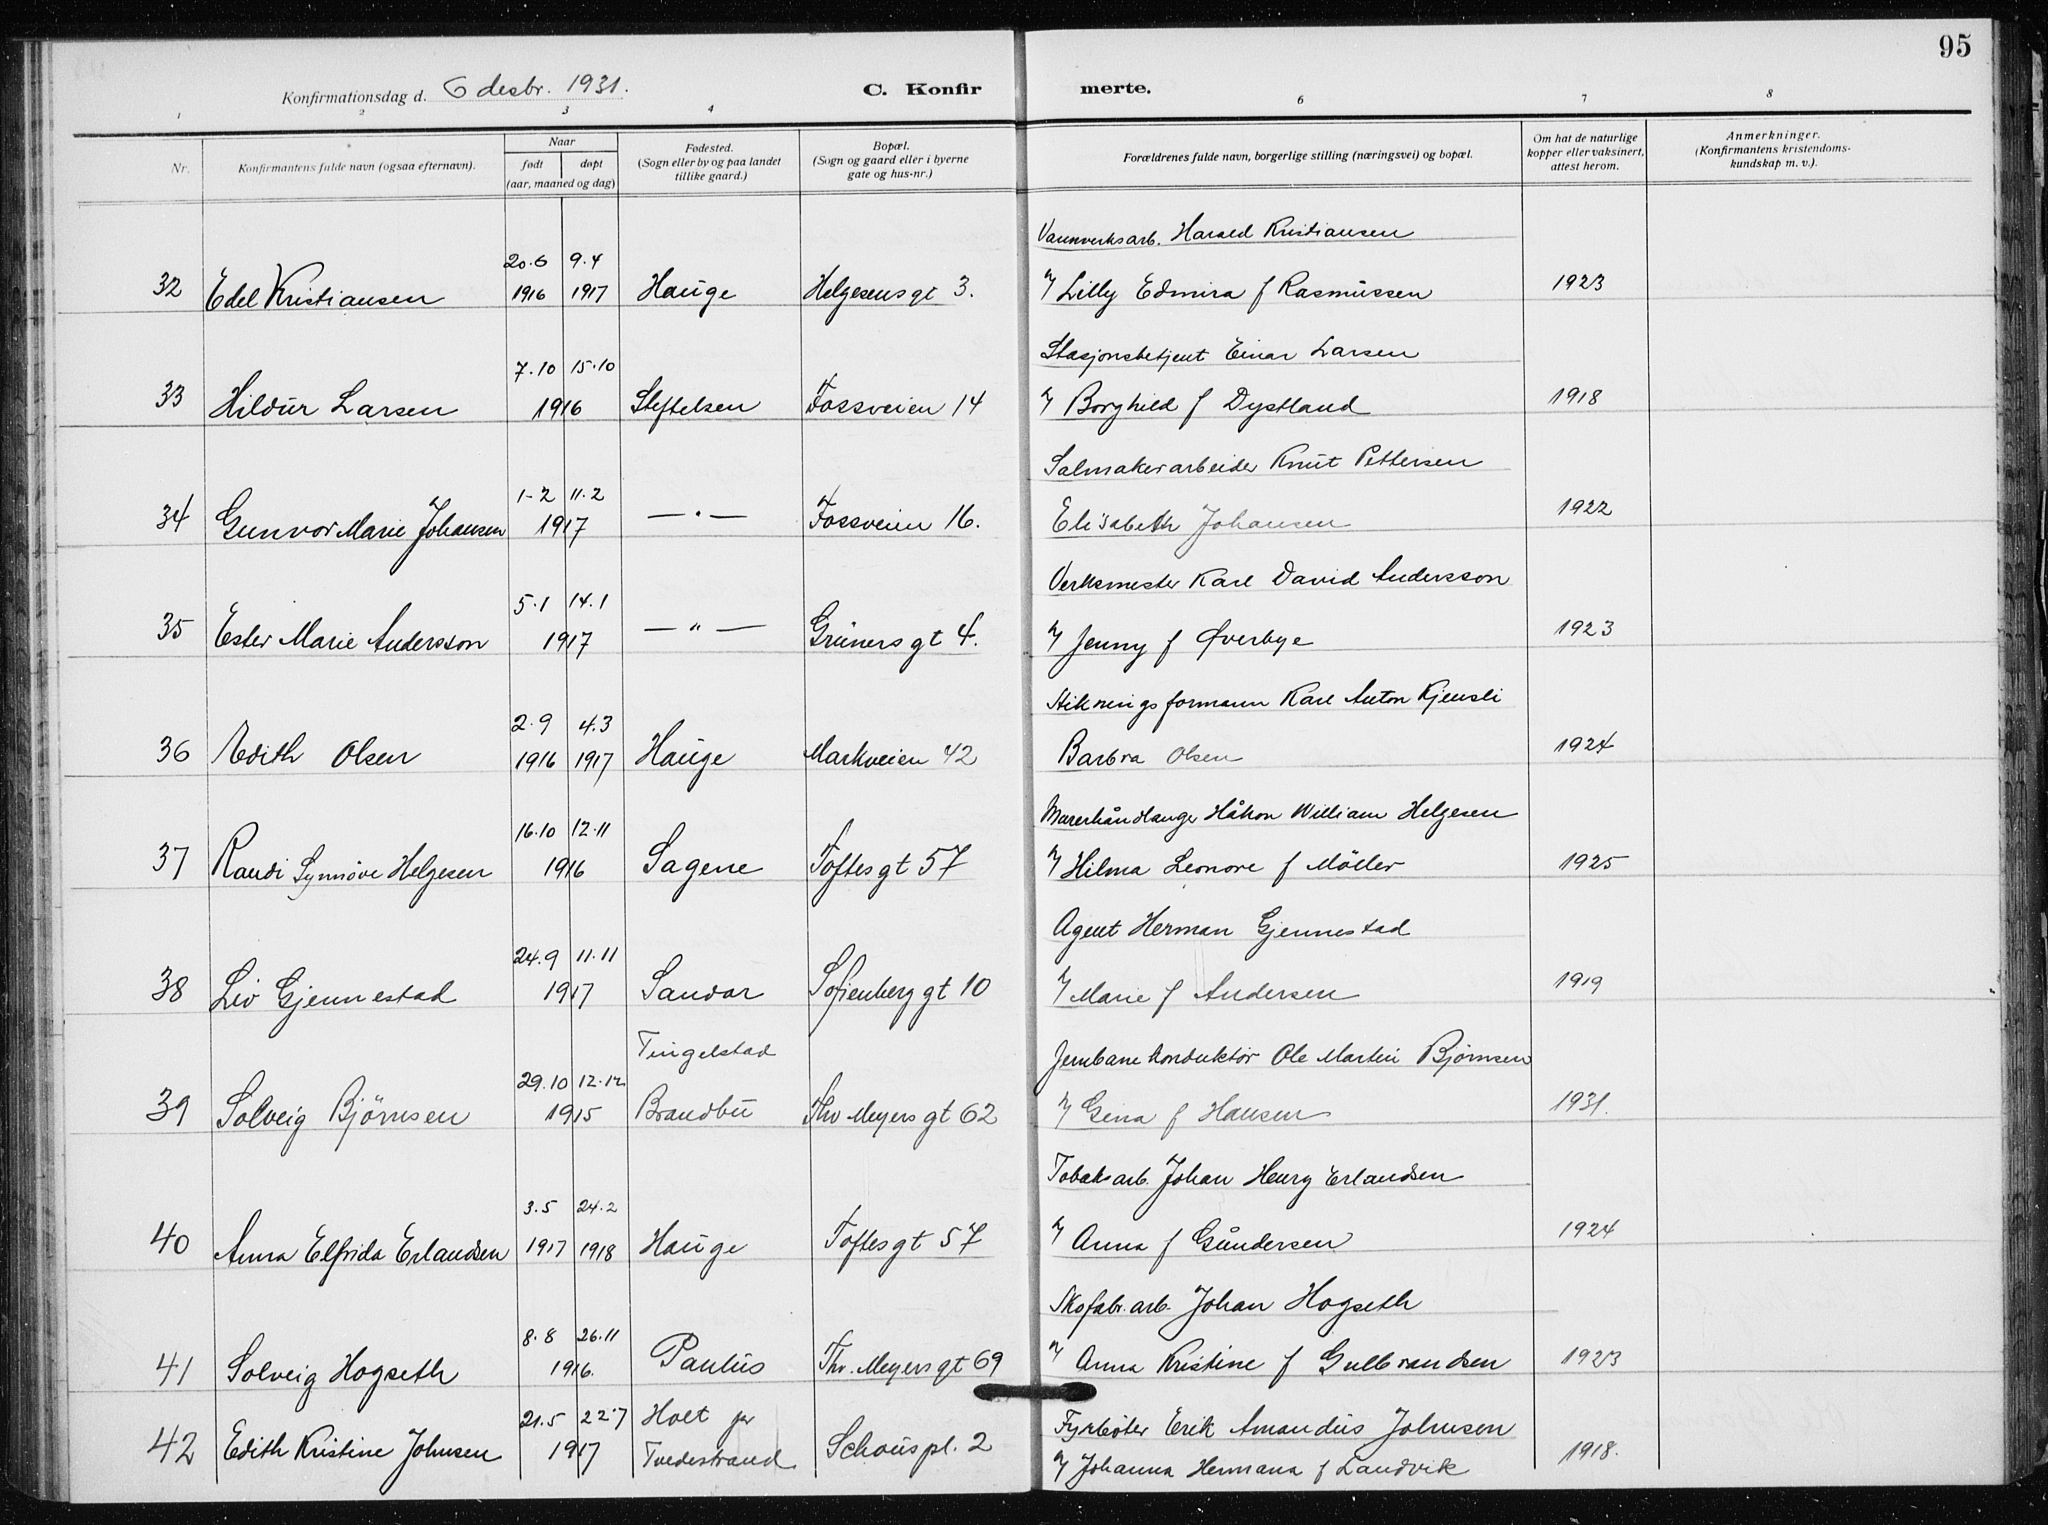 95
Konfirmationsdag d. 6 desbr. 1931.
C. Konfir merte.
1 2 3 4 6 7 8
Nr.
Konfirmantens fulde navn (ogsaa efternavn).
Naar
født døpt
(aar, maaned og dag)
Fødested.
(Sogn eller by og paa landet
tillike gaard.)
Bopæl.
(Sogn og gaard eller i byerne
gate og hus-nr.)
Forældrenes fulde navn, borgerlige stilling (næringsvei) og bopæl.
Om hat de naturlige
kopper eller vaksinert,
attest herom.
Anmerkninger.
(Konfirmantens kristendoms-
kundskap m. v.).
Vannverksarb. Harald Kristiansen
20.6 9.4
32 Edel Kristiansen 1916 1917 Hauge Helgesens gt 3. Lilly Edmira f Rasmussen 1923
Stasjonsbetjent Einar Larsen
7.10 15.10
33 Hildur Larsen 1916 Steftelsen Fossveien 14 Borghild f Dystland 1918
Salmakerarbeider Knut Pettersen
1-2 11.2
34 Gunvor Marie Johansen 1917 — " — Fossveien 16. Elisabeth Johansen 1922
Verksmester Karl David Andersson
5.1 14.1
35 Ester Marie Andersson 1917 — " — Grüners gt 4. Jenny f Øverbye 1923
Stikningsformann Karl Anton Kjensli
2.9 4.3
36 Edith Olsen 1916 1917 Hauge Markveien 42 Barbra Olsen 1924
Murerhåndlanger Håkon William Helgesen
16.10 12.11
37 Randi Synnöve Helgesen 1916 Sagene Toftes gt 57 Hilma Leonore f Möller 1925
Agent Herman Gjennestad
24.9 11.11
38 Liv Gjennestad 1917 Sandar Sofienberg gt 10 Marie f Andersen 1919
Tingelstad
Jernbanekonduktör Ole Martin Björnsen
29.10 12.12
39 Solveig Björnsen 1915 Brandbu Thv Meyers gt 62 Gina f Hansen 1931.
Tobaksarb. Johan Henry Erlandsen
3.5 24.2
40 Anna Elfrida Erlandsen 1917 1918 Hauge Toftes gt 57 Anna f Gundersen 1924
Skofabr. arb. Johan Hogseth
8.8 26.11
41 Solveig Hogseth 1916. Paulus Thv. Meyers gt 69 Anna Kristine f Gulbrandsen 1923
21.5 22.7 Holt pr Fyrböter Erik Amandus Johnsen
42 Edith Kristine Johnsen 1917 Tvedestrand Schous pl. 2 Johanna Hermana f Landvik 1918.